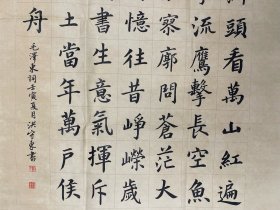 頭看萬山紅遍
流鷹擊長空魚
寥廓問蒼茫大
憶往昔崢嶸歲
書生意氣揮斥
土當年萬戶侯
舟
毛澤東詞壬寅夏月洪書